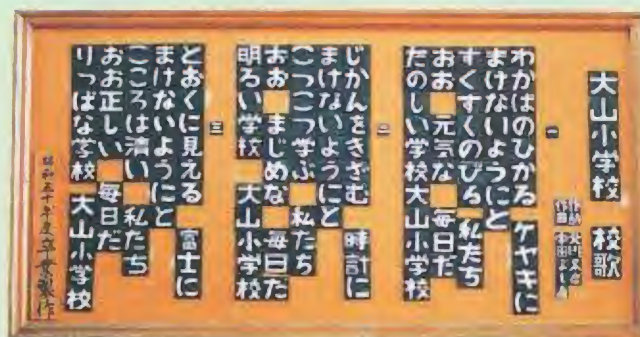 大山小学校 校歌
作詞
作曲
一
わかばのひかる ケヤキに
まけないようにと
すくすくのびる 私たち
おお 元気な 毎日だ
たのしい学校 大山小学校
二
じかんをきざむ 時計に
まけないようにと
こつこつ学ぶ 私たち
おお まじめな 毎日だ
明るい学校 大山小学校
三
とおくに見える 富士に
まけないようにと
こころは清い 私たち
おお正しい 毎日だ
りっぱな学校 大山小学校
昭和五十年度卒業製作